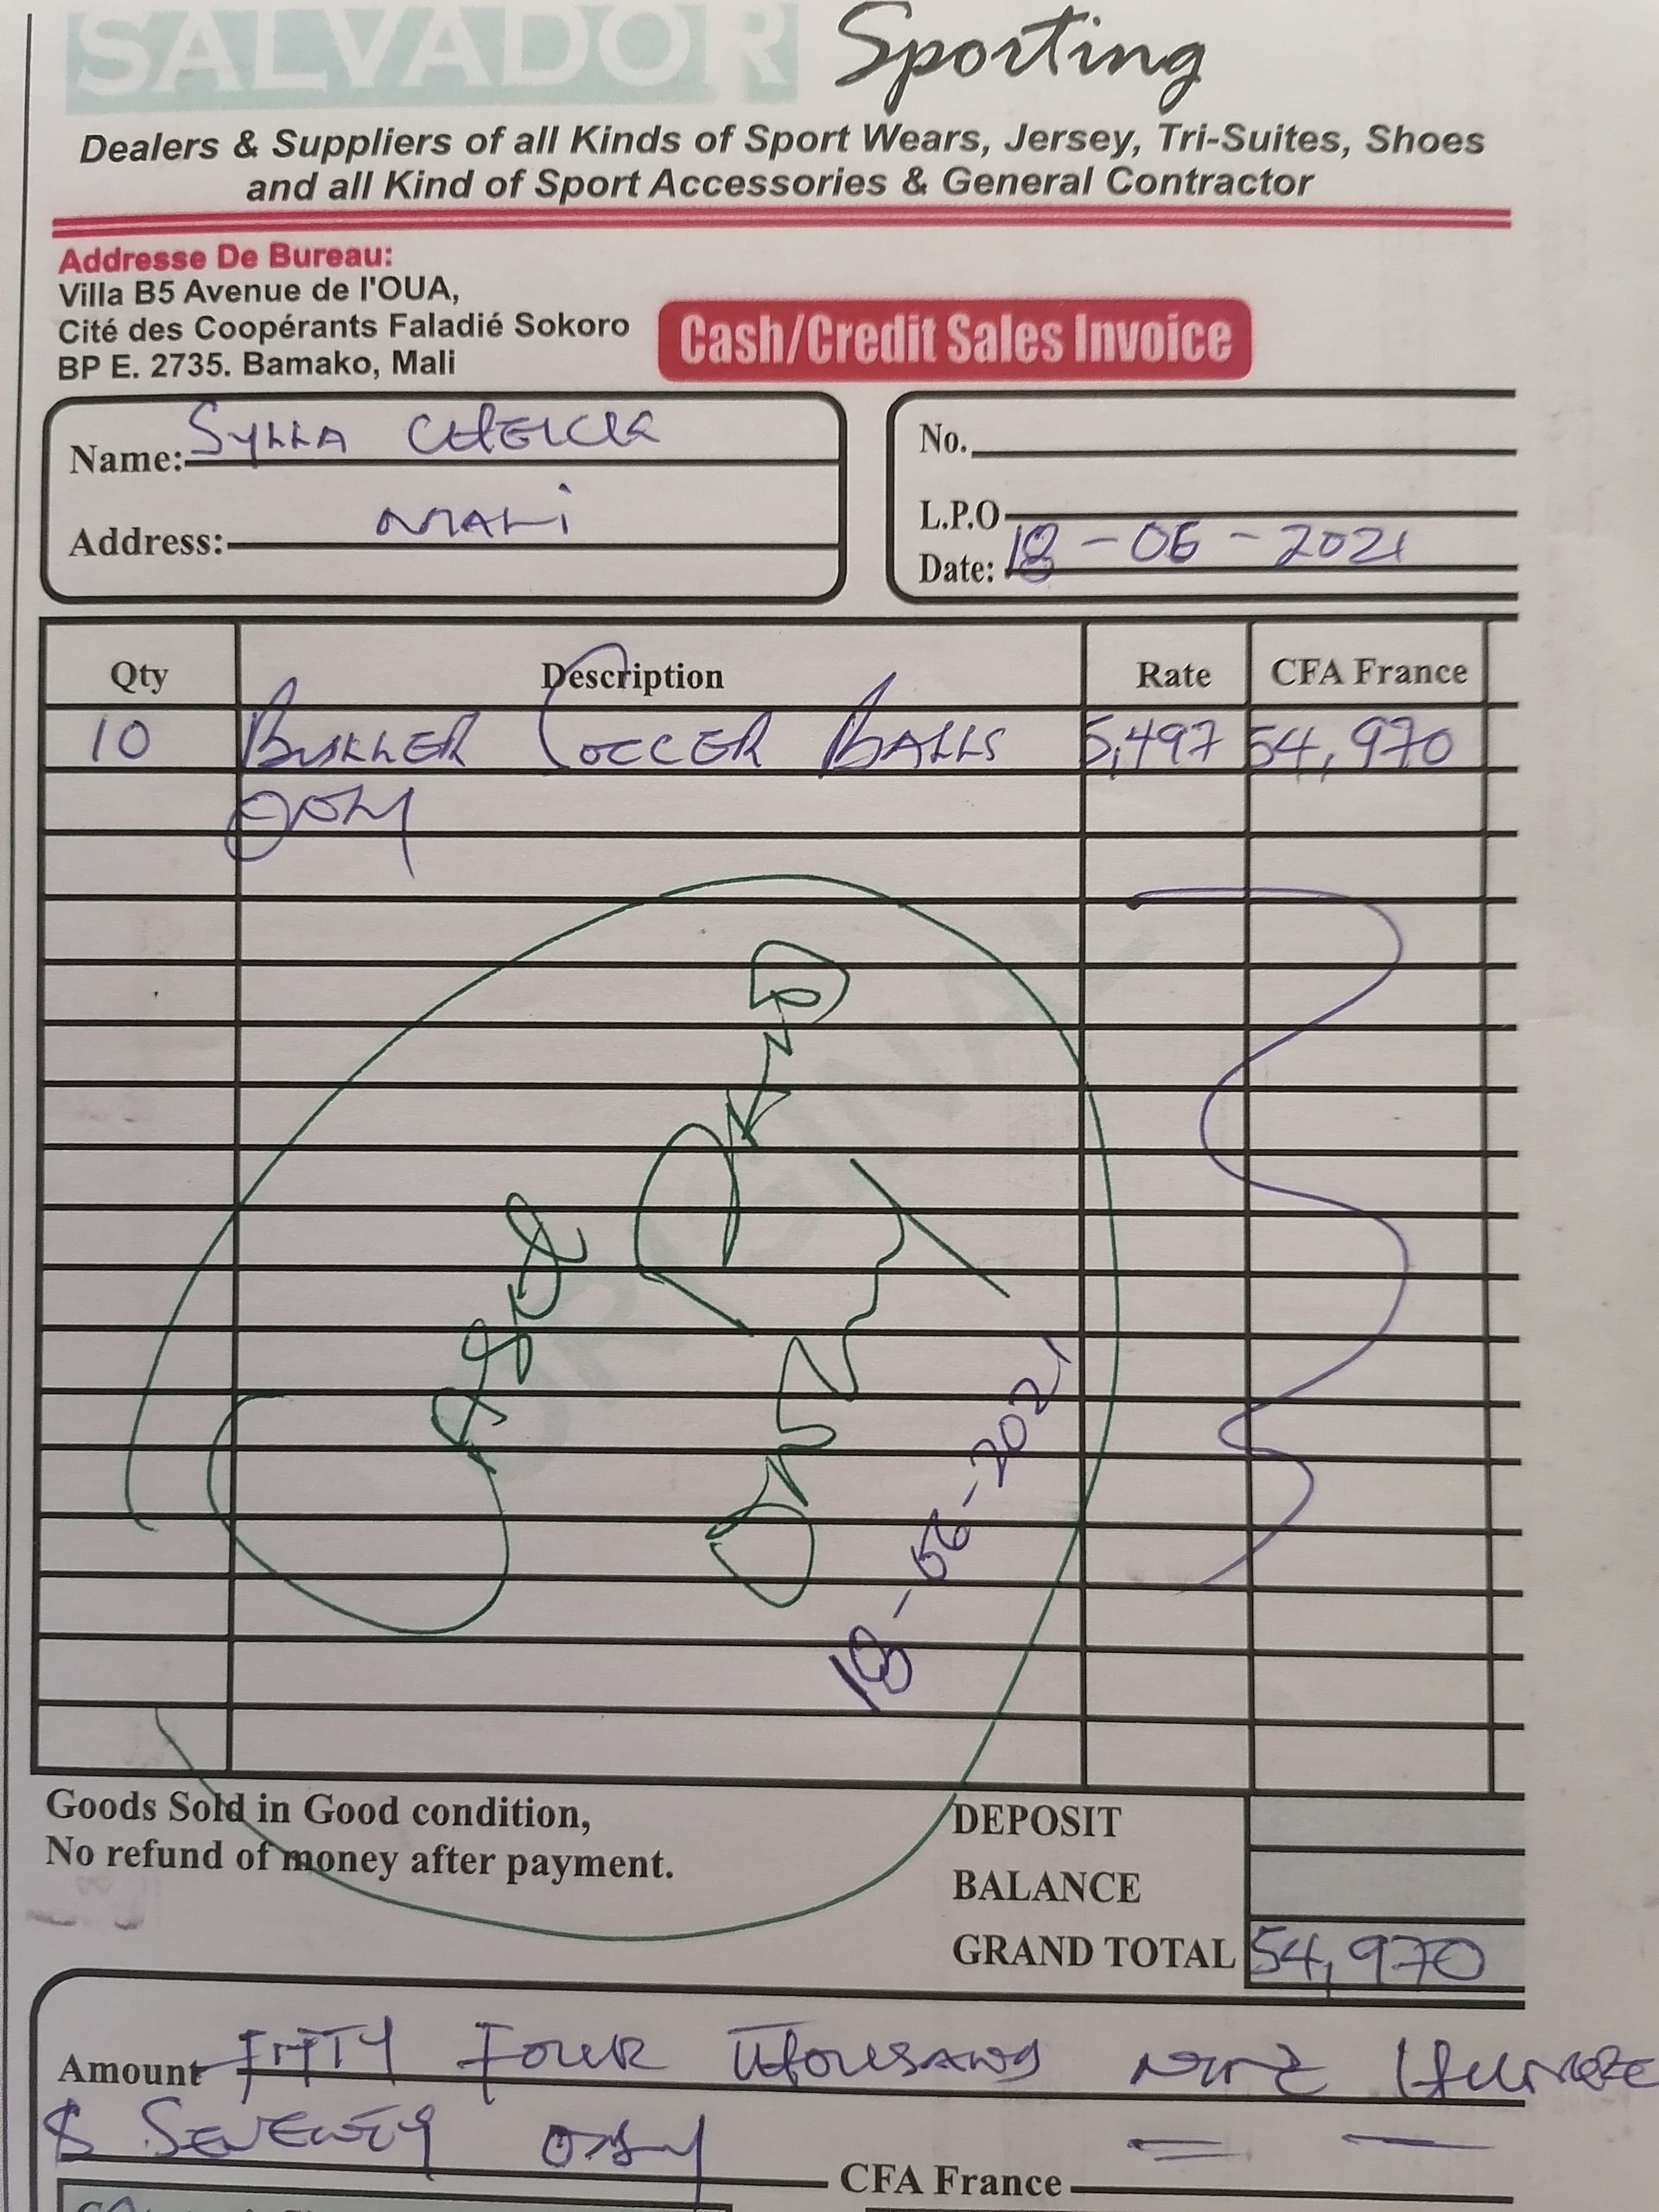 SALVADOR Sporting
Dealers & Suppliers of all Kinds of Sport Wears, Jersey, Tri-Suites, Shoes
and all Kind of Sport Accessories & General Contractor
Addresse De Bureau:
Villa B5 Avenue de l'OUA,
Cité des Coopérants Faladié Sokoro
BP E. 2735. Bamako, Mali
Cash/Credit Sales Invoice
Name: SYLLA CHEICK
Address: MALI
No.
L.P.O
Date: 18-06-2021
Qty Description Rate CFA France
10 SOCCER BALLS 5,497 54,970
ONLY
ORIGINAL
18-06-2021
Goods Sold in Good condition,
No refund of money after payment.
DEPOSIT
BALANCE
GRAND TOTAL 54,970
Amount FIFTY FOUR THOUSAND NINE HUNDRED
& SEVENTY ONLY
CFA France